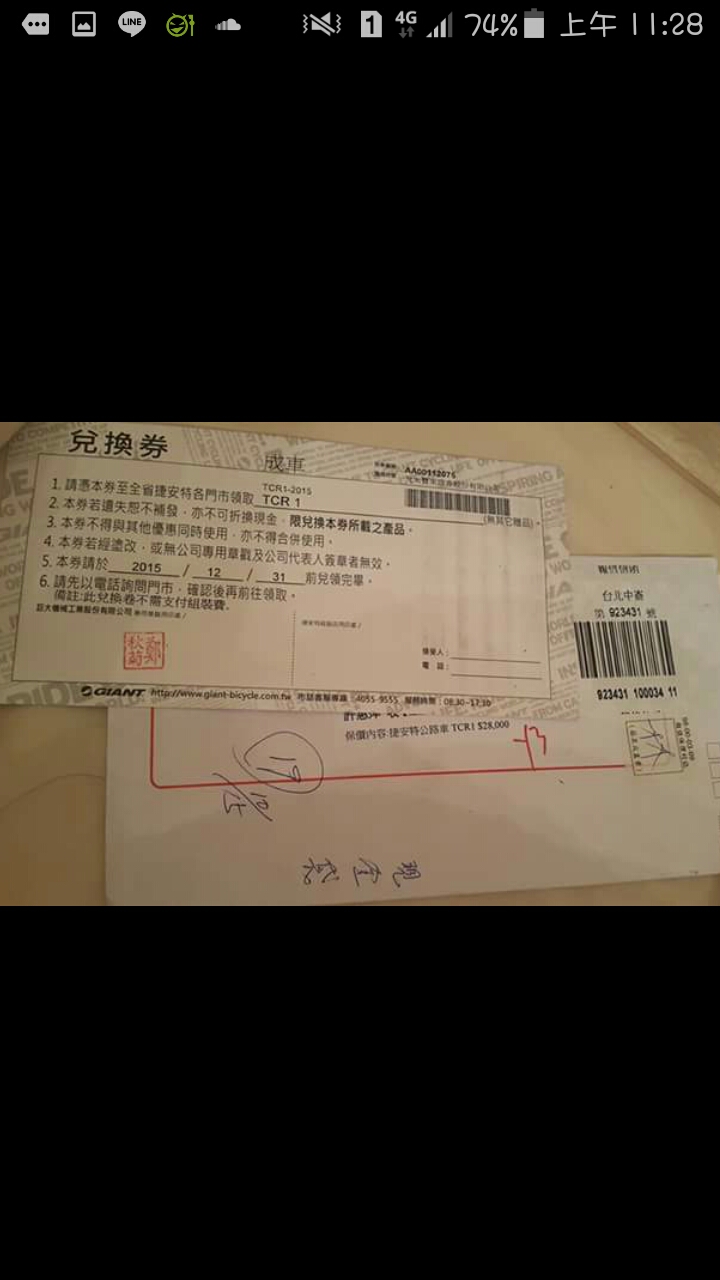 LINE
1
4G
74%
上午 11:28
兌換券
成車
AA00112075
1. 請憑本券至全省捷安特各門市領取 TCR1-2015 TCR 1
(無其它贈品)。
2. 本券若遺失恕不補發，亦不可折換現金，限兌換本券所載之產品。
3. 本券不得與其他優惠同時使用，亦不得合併使用。
4. 本券若經塗改，或無公司專用章戳及公司代表人簽章者無效。
5. 本券請於 2015 / 12 / 31 前兌領完畢。
6. 請先以電話詢問門市，確認後再前往領取。
備註:此兌換卷不需支付組裝費.
巨大機械工業股份有限公司
領受人：
電 話：
GIANT http://www.giant-bicycle.com.tw 市話客服專線：4055-9555 服務時間：08:30~17:30
台北中崙
第 923431 號
923431 100034 11
保價內容:捷安特公路車 TCR1 $28,000
19
10/15